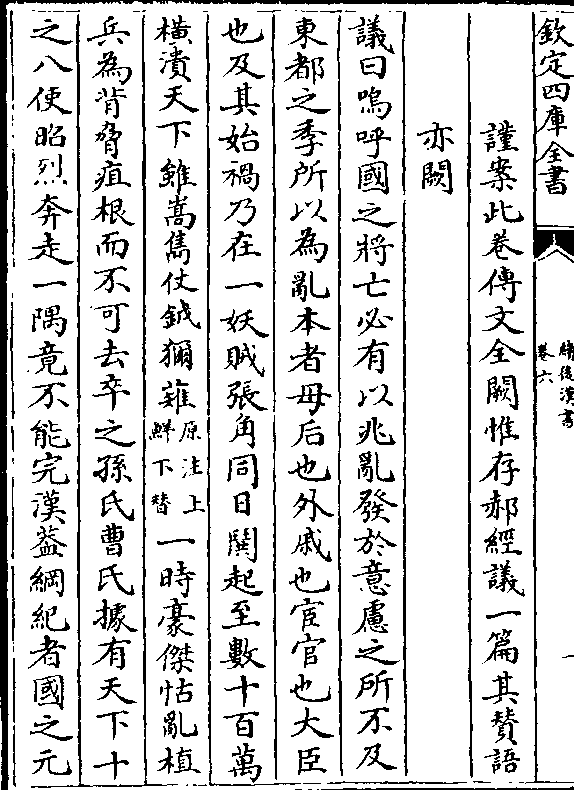 欽定四庫全書
續後漢書
卷六
一
謹案此卷傳文全闕惟存郝經議一篇其賛語
亦闕
議曰嗚呼國之將亡必有以兆亂發於意慮之所不及
東都之季所以為亂本者母后也外戚也宦官也大臣
也及其始禍乃在一妖賊張角同日鬨起至數十百萬
橫潰天下雖嵩雋仗鉞獮薙原注上鮮下替一時豪傑怙亂植
兵為背脅疽根而不可去卒之孫氏曹氏據有天下十
之八使昭烈奔走一隅竟不能完漢葢綱紀者國之元